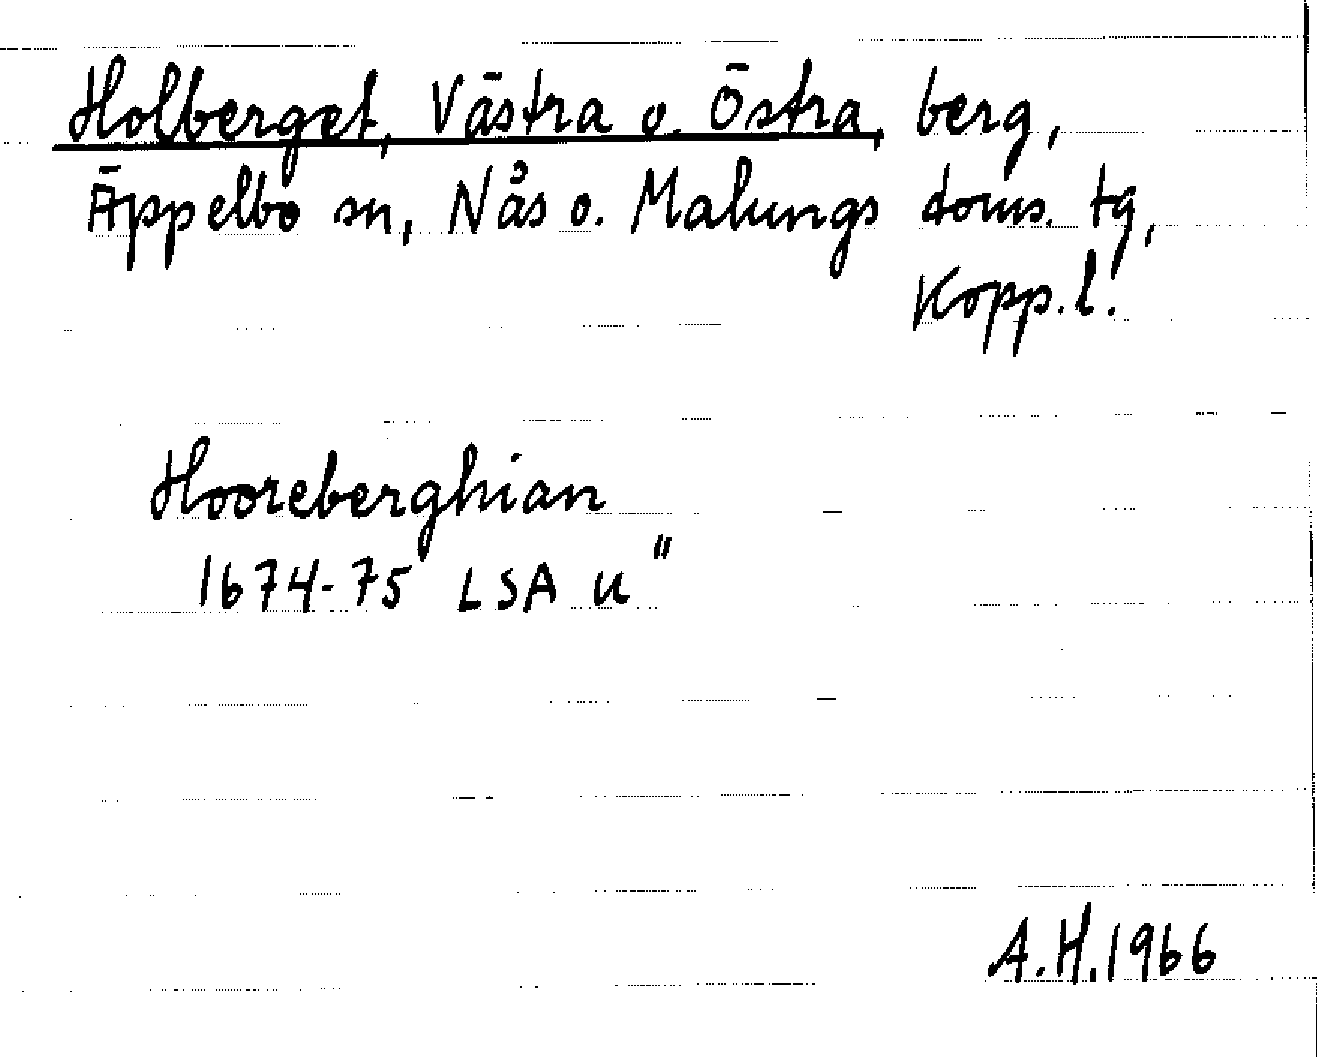 Holberget, Västra o. Östra, berg,
Äppelbo sn, Nås o. Malungs doms. tg,
Kopp. l.
Hooreberghian
1674-75 LSA u"
A.H. 1966